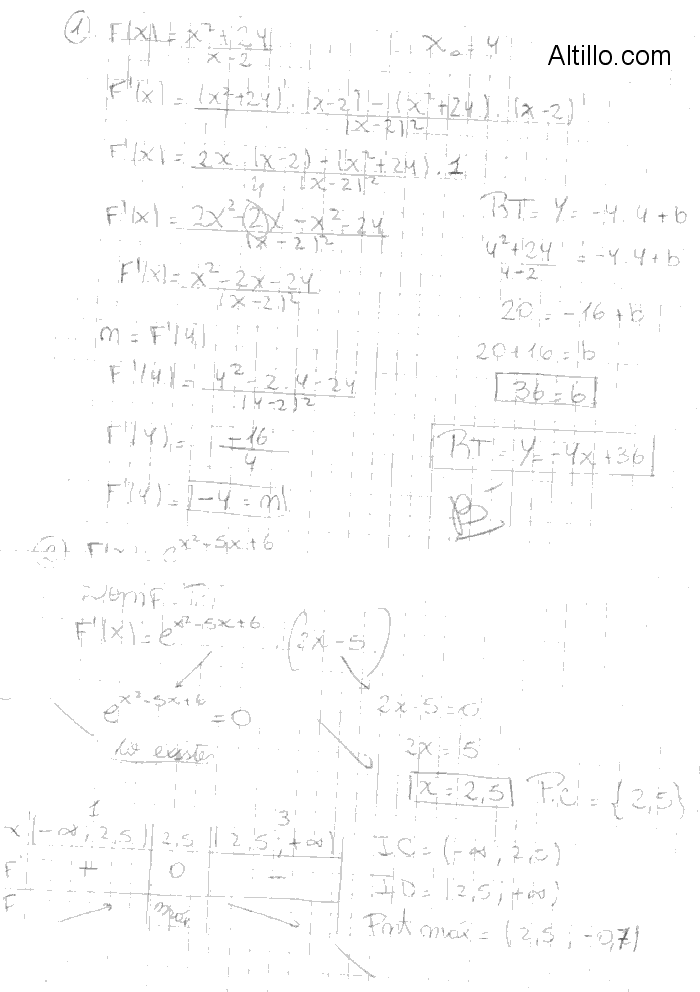 Altillo.com
① F(x) = x² + 24 / x-2    x₀ = 4
F'(x) = (x²+24)' . (x-2) - (x²+24) . (x-2)' / (x-2)²
F'(x) = 2x . (x-2) - (x²+24) . 1 / (x-2)²
4
F'(x) = 2x² - 2x - x² - 24 / (x-2)²
F'(x) = x² - 2x - 24 / (x-2)²
m = F'(4)
F'(4) = 4² - 2 . 4 - 24 / (4-2)²
F'(4) = -16 / 4
F'(4) = -4 = m
RT = Y = -4 . 4 + b
4² + 24 / 4-2 = -4 . 4 + b
20 = -16 + b
20 + 16 = b
36 = b
RT = Y = -4x + 36
B
② e^x²-5x+6
F'(x) = e^x²-5x+6 . (2x-5)
e^x²-5x+6 = 0
no existe
2x-5=0
2x = 5
x = 2,5    P.C = {2,5}
1    3
x (-∞; 2,5) 2,5 (2,5; +∞)
F' + 0 -
F
IC = (-∞; 2,5)
ID = (2,5; +∞)
Pnt max = (2,5; -0,7)